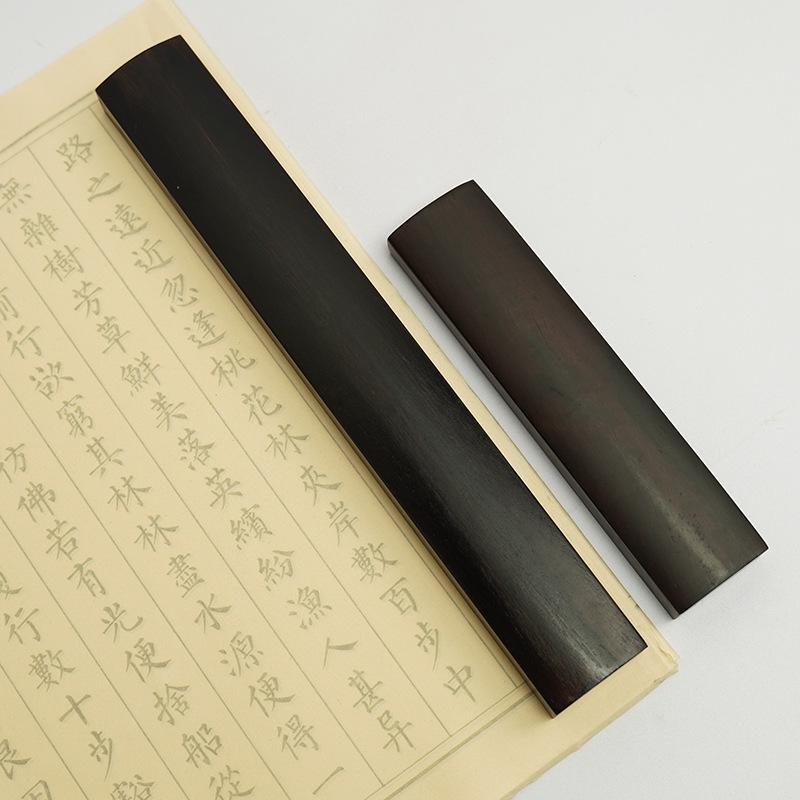 路之遠近忽逢桃花林夾岸數百步中
無雜樹芳草鮮美落英繽紛漁人甚异
前行欲窮其林林盡水源便得一
仿佛若有光便捨船從
行數十步豁
良田